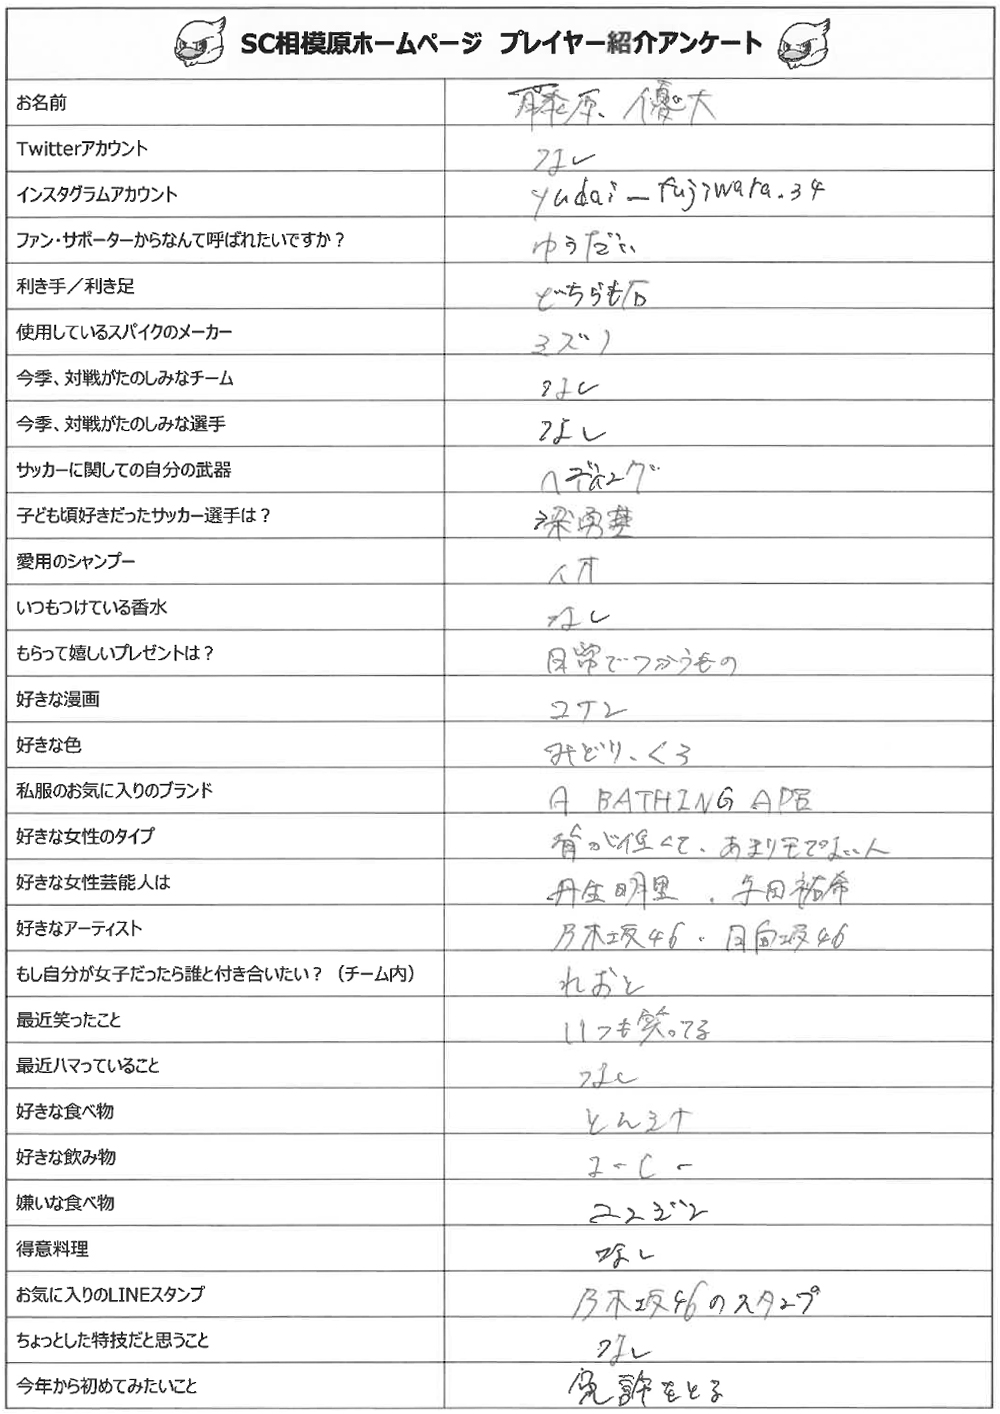 SC相模原ホームページ プレイヤー紹介アンケート
お名前 藤原、優大
Twitterアカウント なし
インスタグラムアカウント yudai_fujiwara.34
ファン・サポーターからなんて呼ばれたいですか？ ゆうだい
利き手／利き足 どちらも右
使用しているスパイクのメーカー ミズノ
今季、対戦がたのしみなチーム なし
今季、対戦がたのしみな選手 なし
サッカーに関しての自分の武器 ヘディング
子ども頃好きだったサッカー選手は？ 梁勇基
愛用のシャンプー イオ
いつもつけている香水 なし
もらって嬉しいプレゼントは？ 日常でつかうもの
好きな漫画 コナン
好きな色 みどり、くろ
私服のお気に入りのブランド A BATHING APE
好きな女性のタイプ 背が低くて、あまりモテない人
好きな女性芸能人は 丹生明里、与田祐希
好きなアーティスト 乃木坂46・日向坂46
もし自分が女子だったら誰と付き合いたい？（チーム内） れおと
最近笑ったこと いつも笑ってる
最近ハマっていること なし
好きな食べ物
好きな飲み物
嫌いな食べ物
得意料理 なし
お気に入りのLINEスタンプ 乃木坂46のスタンプ
ちょっとした特技だと思うこと なし
今年から初めてみたいこと 免許をとる